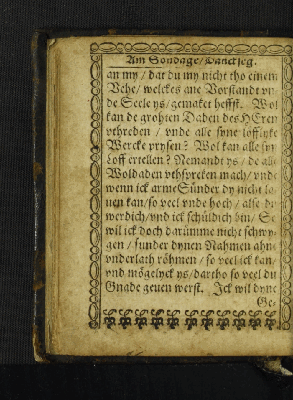 Am Sondage/Danckseg.
an my / dat du my nicht tho einem
Vehe / welckes ane Vorstandt vn-
de Seele ys / gemaket heffst. Wol
kan de grohten Daden des HEren
vthreden / vnde alle syne lofflyke
Wercke prysen? Wol kan alle syn
Loff ertellen? Nemandt ys / de alle
Woldaden vthspreken mach / vnde
wenn ick arme Sünder dy nicht lo-
uen kan / so veel vnde hoch / alse du
werdich / vnd ick schüldich bin / So
wil ick doch darümme nicht schwy-
gen / sunder dynen Nahmen ahn
vnderlath röhmen / so veel ick kan /
vnd mögelyck ys / dartho so veel du
Gnade geuen werst. Ick wil dyne
Ge-